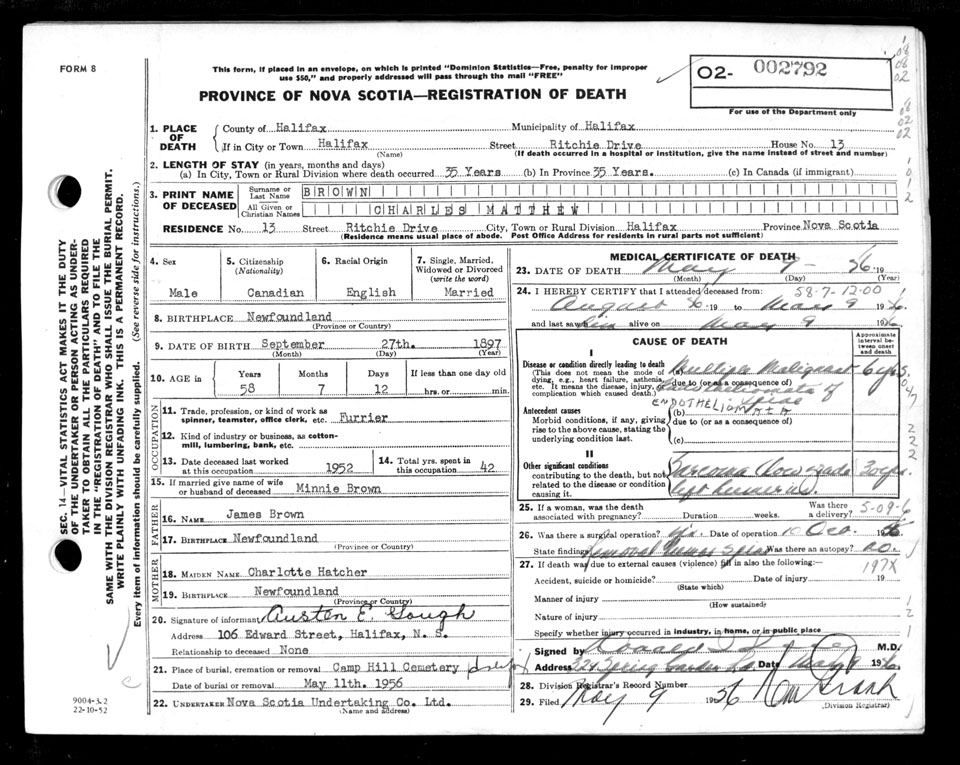 FORM 8
This form, if placed in an envelope, on which is printed "Dominion Statistics—Free, penalty for improper
use $50," and properly addressed will pass through the mail "FREE"
PROVINCE OF NOVA SCOTIA—REGISTRATION OF DEATH
O2- 002792
For use of the Department only
SEC. 14—VITAL STATISTICS ACT MAKES IT THE DUTY
OF THE UNDERTAKER OR PERSON ACTING AS UNDER-
TAKER TO OBTAIN ALL THE PARTICULARS REQUIRED
IN THE "REGISTRATION OF DEATH" AND TO FILE THE
SAME WITH THE DIVISION REGISTRAR WHO SHALL ISSUE THE BURIAL PERMIT.
WRITE PLAINLY WITH UNFADING INK. THIS IS A PERMANENT RECORD.
Every item of information should be carefully supplied. (See reverse side for instructions.)
1. PLACE OF DEATH
County of Halifax Municipality of Halifax
If in City or Town Halifax Street Ritchie Drive House No. 13
(Name) (If death occurred in a hospital or institution, give the name instead of street and number)
2. LENGTH OF STAY (in years, months and days)
(a) In City, Town or Rural Division where death occurred 35 Years (b) In Province 35 Years. (c) In Canada (if immigrant)
3. PRINT NAME OF DECEASED
Surname or Last Name BROWN
All Given or Christian Names CHARLES MATTHEW
RESIDENCE No. 13 Street Ritchie Drive City, Town or Rural Division Halifax Province Nova Scotia
(Residence means usual place of abode. Post Office Address for residents in rural parts not sufficient)
4. Sex
Male
5. Citizenship (Nationality)
Canadian
6. Racial Origin
English
7. Single, Married, Widowed or Divorced (write the word)
Married
8. BIRTHPLACE Newfoundland
(Province or Country)
9. DATE OF BIRTH September 27th. 1897
(Month) (Day) (Year)
10. AGE in Years Months Days If less than one day old
58 7 12 hrs. or min.
OCCUPATION
11. Trade, profession, or kind of work as
spinner, teamster, office clerk, etc. Furrier
12. Kind of industry or business, as cotton-
mill, lumbering, bank, etc.
13. Date deceased last worked
at this occupation 1952
14. Total yrs. spent in
this occupation 42
15. If married give name of wife
or husband of deceased Minnie Brown
FATHER
16. NAME James Brown
17. BIRTHPLACE Newfoundland
(Province or Country)
MOTHER
18. MAIDEN NAME Charlotte Hatcher
19. BIRTHPLACE Newfoundland
(Province or Country)
20. Signature of informant Austen E. Gough
Address 106 Edward Street, Halifax, N. S.
Relationship to deceased None
21. Place of burial, cremation or removal Camp Hill Cemetery
Date of burial or removal May 11th. 1956
22. UNDERTAKER Nova Scotia Undertaking Co. Ltd.
(Name and address)
MEDICAL CERTIFICATE OF DEATH
23. DATE OF DEATH May 9 56 19
(Month) (Day) (Year)
24. I HEREBY CERTIFY that I attended deceased from: 58-7-12-00
August 19 to May 9 1956
and last saw him alive on May 9 1956
CAUSE OF DEATH
Approximate interval between onset and death
I
Disease or condition directly leading to death
(This does not mean the mode of
dying, e.g., heart failure, asthenia,
etc. It means the disease, injury, or
complication which caused death.)
(a) Multiple Malignant 6 yrs
due to (or as a consequence of)
Antecedent causes
Morbid conditions, if any, giving
rise to the above cause, stating the
underlying condition last.
ENDOTHELIOMATA
(b)
due to (or as a consequence of)
(c)
II
Other significant conditions
contributing to the death, but not
related to the disease or condition
causing it.
Sarcoma low grade 30 yrs.
left humerus.
25. If a woman, was the death
associated with pregnancy? Duration weeks. Was there a delivery?
5-09-6
26. Was there a surgical operation? Yes Date of operation 19
State findings Removal Was there an autopsy? no.
27. If death was due to external causes (violence) fill in also the following:
197X
Accident, suicide or homicide? Date of injury 19
(State which)
Manner of injury
(How sustained)
Nature of injury
Specify whether injury occurred in industry, in home, or in public place
Signed by Donald M.D.
Address 324 Spring Garden Rd. Date May 9 1956
28. Division Registrar's Record Number
29. Filed May 9 1956
(Division Registrar)
9004-3.2
22-10-52